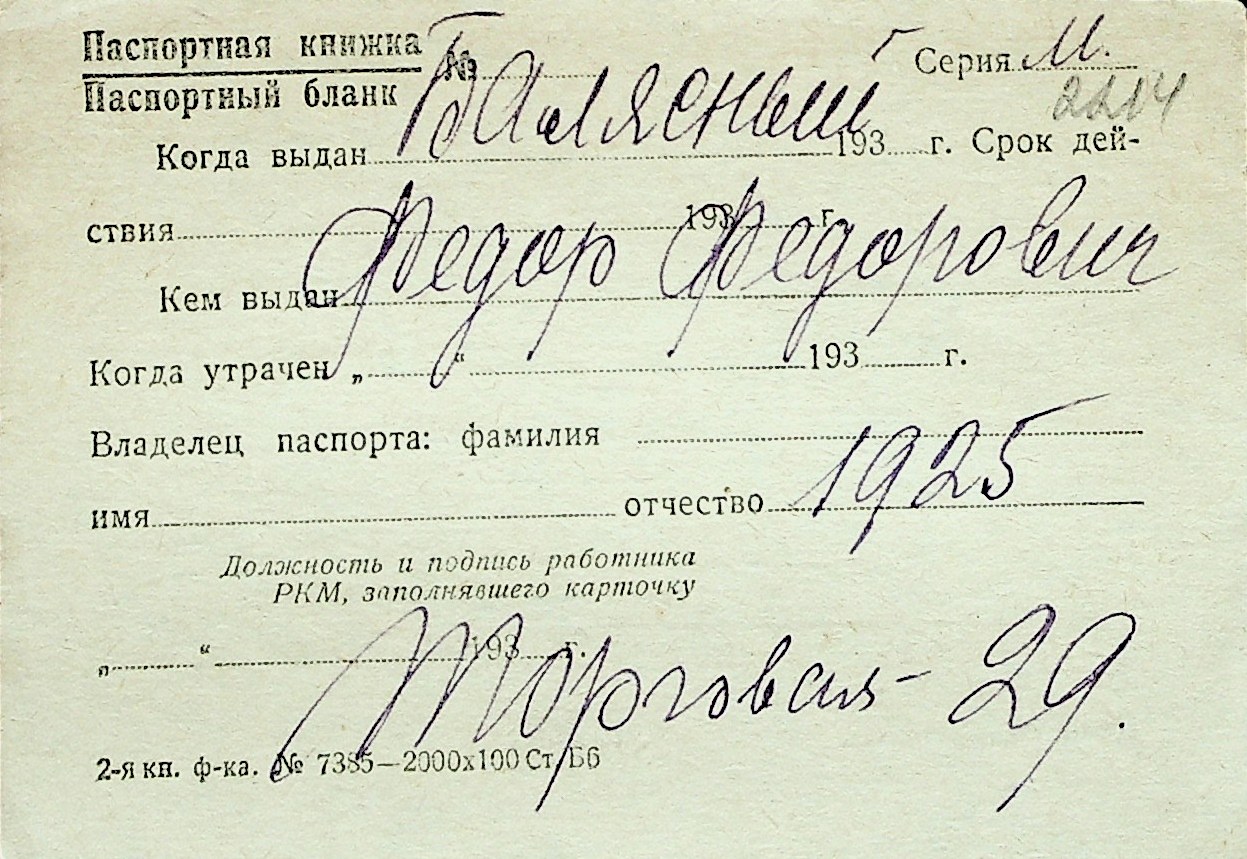 Паспортная книжка № Серия М.
Паспортный бланк 2204
Балясный
Когда выдан 193 г. Срок дей-
ствия 193 г.
Федор Федорович
Кем выдан
Когда утрачен „ “ 193 г.
Владелец паспорта: фамилия
1925
имя отчество
Должность и подпись работника
РКМ, заполнявшего карточку
„ “ 193 г.
Торговая - 29.
2-я кн. ф-ка. № 7385—2000х100 Ст. Б6